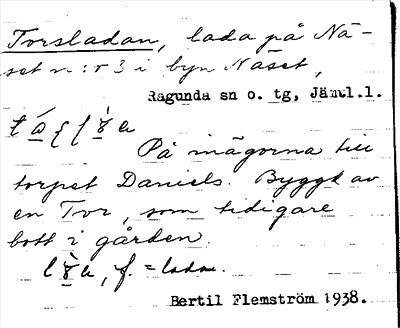 Torsladan, lada på Nä-
set n:r 3 i byn Näset,
Ragunda sn o. tg, Jämtl.l.
På mägorna till
torpet Daniels. Byggt av
en Tor, som tidigare
bott i gården.
f. = lada.
Bertil Flemström 1938.